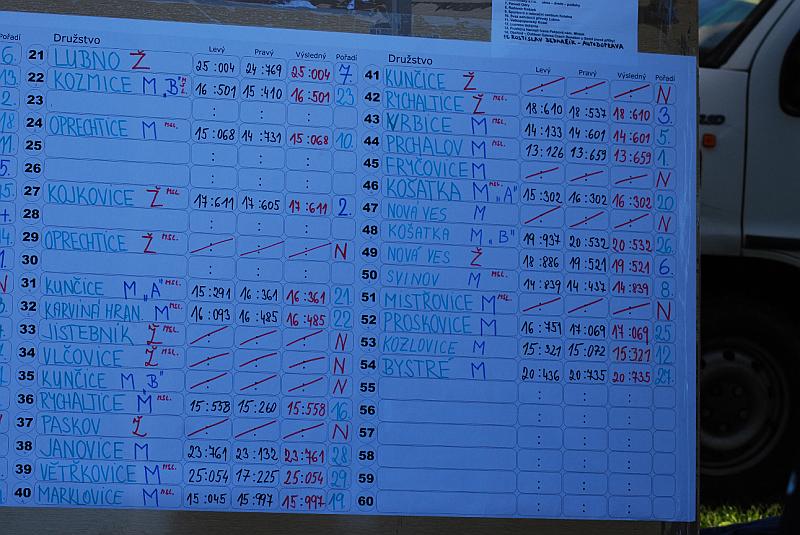 15 ROSTISLAV BEDNAŘÍK - AUTODOPRAVA
Družstvo Levý Pravý Výsledný Pořadí
21 LUBNO Ž 25:004 24:769 25:004 7.
22 KOZMICE M "B" MSL. 16:501 15:410 16:501 23
23 : : :
24 OPRECHTICE M MSL. 15:068 14:731 15:068 10.
25 : : :
26 : : :
27 KOJKOVICE Ž MSL. 17:611 17:605 17:611 2.
28 : : :
29 OPRECHTICE Ž MSL. : : : N
30 : : :
31 KUNČICE M "A" MSL. 15:291 16:361 16:361 21.
32 KARVINÁ HRAN. M MSL. 16:093 16:485 16:485 22
33 JISTEBNÍK Ž MSL. : : : N
34 VLČOVICE Ž MSL. : : : N
35 KUNČICE M "B" : : : N
36 RYCHALTICE M MSL. 15:558 15:260 15:558 16.
37 PASKOV Ž : : : N
38 JANOVICE M MSL. 23:761 23:132 23:761 28
39 VĚTŘKOVICE M MSL. 25:054 17:225 25:054 29.
40 MARKLOVICE M MSL. 15:045 15:997 15:997 19.
Družstvo Levý Pravý Výsledný Pořadí
41 KUNČICE Ž : : : N
42 RYCHALTICE Ž MSL. 18:610 18:537 18:610 3.
43 VRBICE M MSL. 14:133 14:601 14:601 5.
44 PRCHALOV M MSL. 13:126 13:659 13:659 1.
45 FRYČOVICE M : : : N
46 KOŠATKA M "A" MSL. 15:302 16:302 16:302 20
47 NOVÁ VES M : : : N
48 KOŠATKA M "B" MSL. 19:937 20:532 20:532 26.
49 NOVÁ VES Ž 18:886 19:521 19:521 6.
50 SVINOV M MSL. 14:839 14:437 14:839 8.
51 MISTŘOVICE M MSL. : : : N
52 PROSKOVICE M 16:751 17:069 17:069 25
53 KOZLOVICE M 15:321 15:072 15:321 12
54 BYSTRÉ M 20:436 20:735 20:735 27.
55 : : :
56 : : :
57 : : :
58 : : :
59 : : :
60 : : :